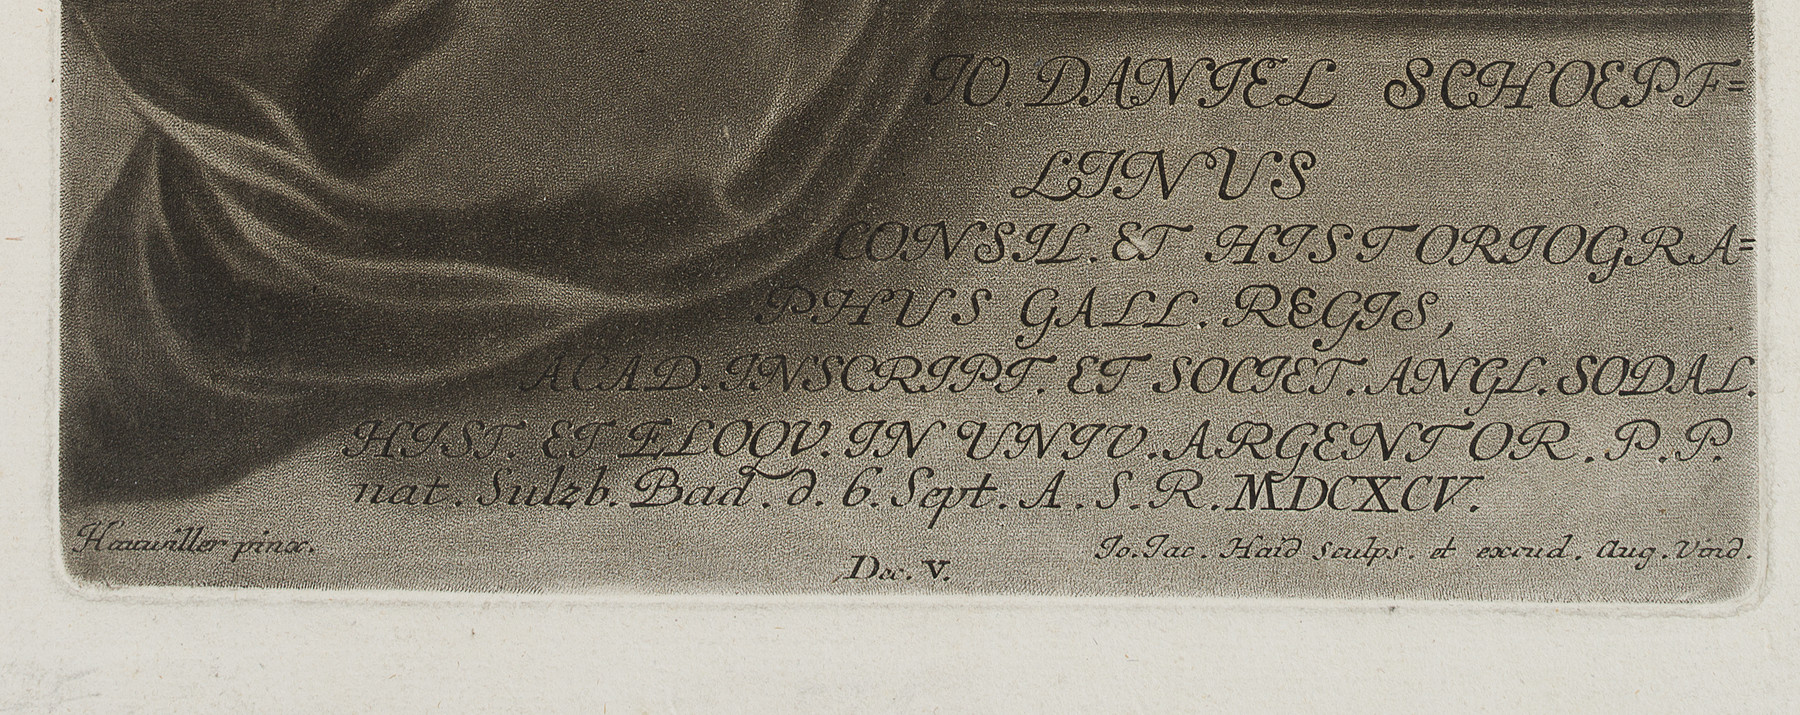 IO. DANIEL SCHOEPF=
LINUS
CONSIL. ET HISTORIOGRA=
PHUS GALL. REGIS,
ACAD. INSCRIPT. ET SOCIET. ANGL. SODAL.
HIST. ET ELOQV. IN UNIV. ARGENTOR. P. P.
nat. Sulzb. Bad. d. 6. Sept. A. S. R. MDCXCV.
Hauwiller pinx.
Io. Iac. Haid sculps. et excud. Aug. Vind.
Dec. V.